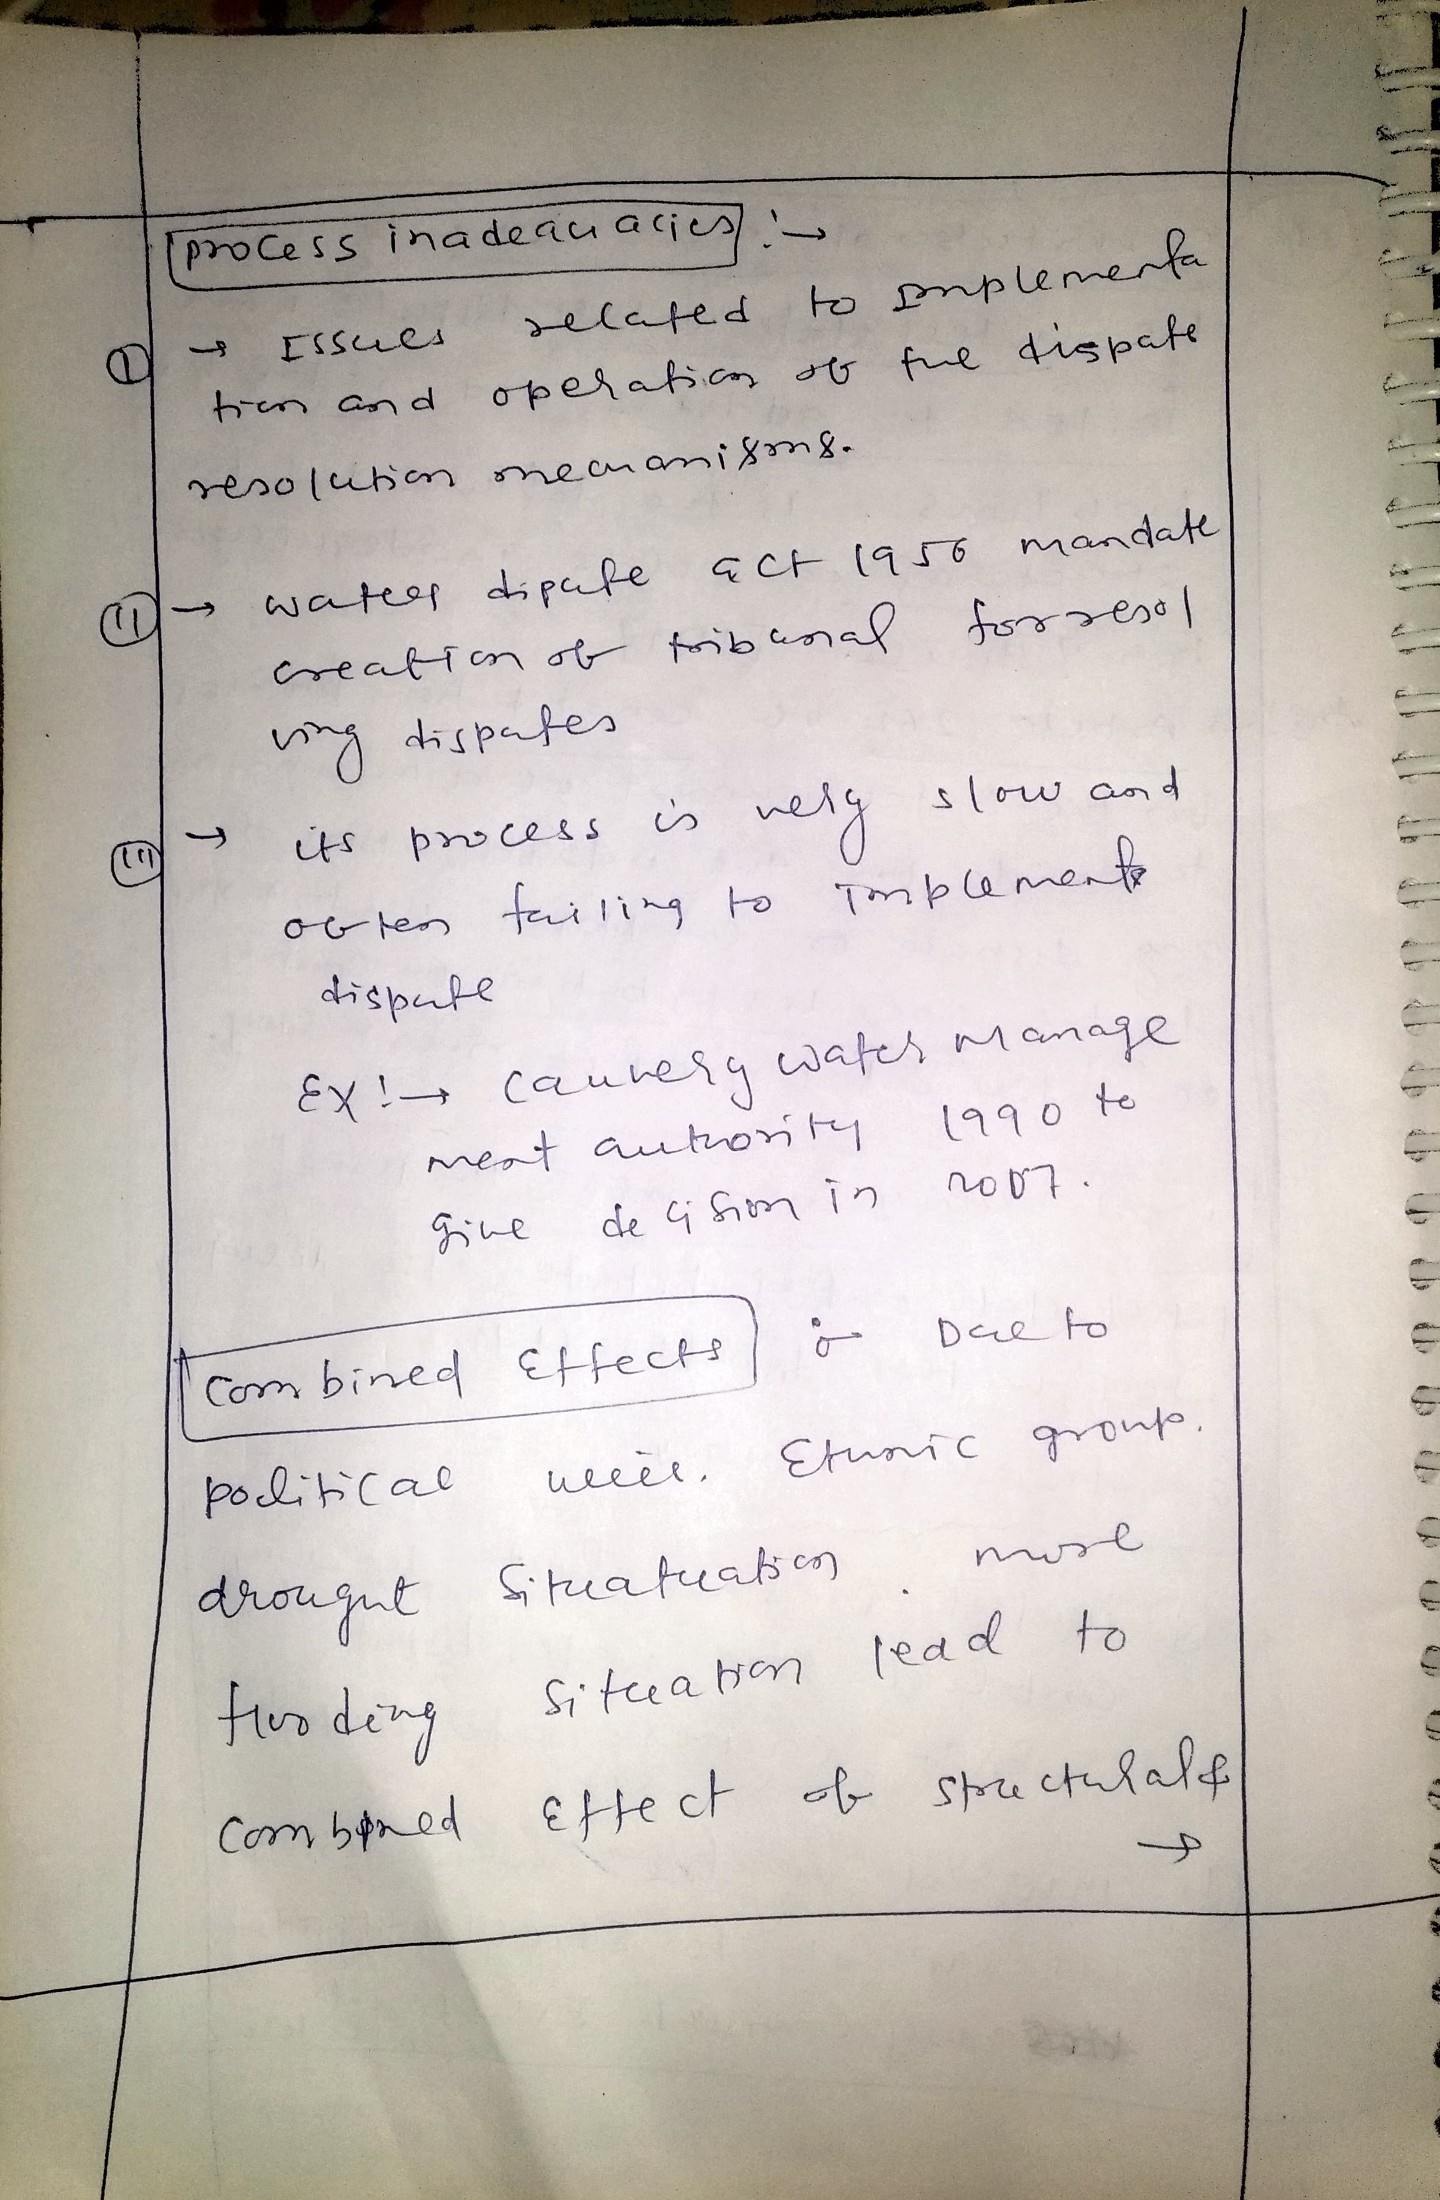 process inadequacies :→
(I) → Issues related to Implementa
tion and operation of the dispute
resolution mechanisms.
(II) → waters dipute act 1956 mandate
creation of tribunal for resol
ving disputes
(III) → its process is very slow and
often failing to Implement
dispute
EX :→ Cauvery water Manage
ment authority 1990 to
give decision in 2007.
Combined Effects :- Due to
political will. Ethnic group.
drought Situatuation. more
flooding Situation lead to
combined Effect of structural &
→